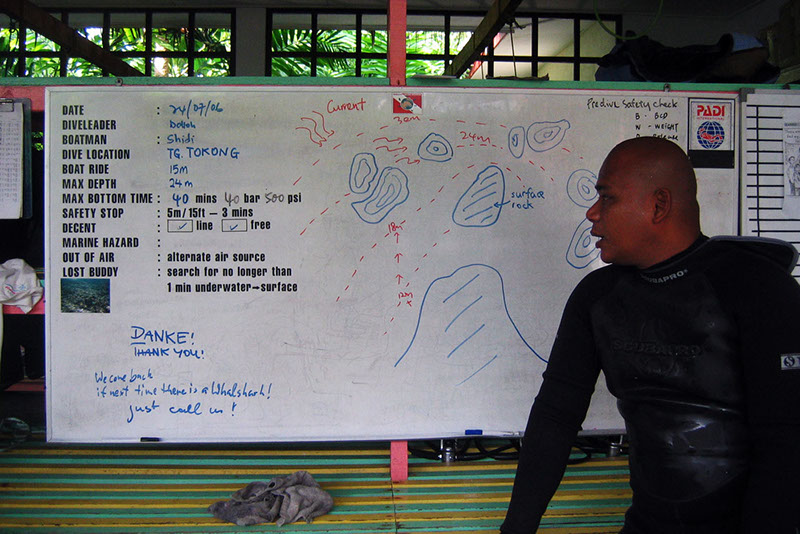 DATE : 24/07/06
DIVELEADER :
BOATMAN : Shidi
DIVE LOCATION : TG. TOKONG
BOAT RIDE : 15m
MAX DEPTH : 24m
MAX BOTTOM TIME : 40 mins 40 bar 500 psi
SAFETY STOP : 5m/15ft – 3 mins
DECENT : ✓ line ✓ free
MARINE HAZARD :
OUT OF AIR : alternate air source
LOST BUDDY : search for no longer than
1 min underwater – surface
DANKE!
THANK YOU!
We come back
if next time there is a Whalshark!
just call us!
Current
30m
24m
surface
rock
18m
12m
Predive Safety check
B - BCD
W - WEIGHT
PADI
SCUBAPRO